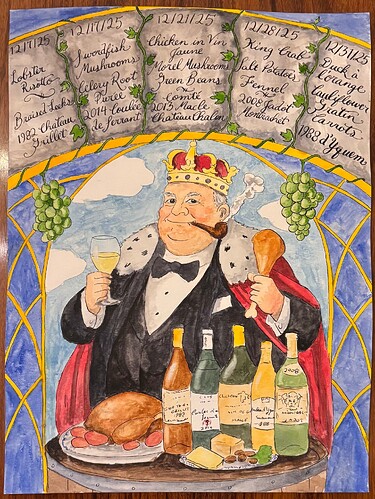 12/7/25
Lobster
Risotto
Braised Leeks
1982 Chateau
Grillet
12/17/25
Swordfish
Mushrooms
Celery Root
Puree
2014 Coulée
de Serrant
12/21/25
Chicken in Vin
Jaune
Morel Mushrooms
Green Beans
Comté
2013 Macle
Chateau Chalon
12/28/25
King Crab
Salt Potatoes
Fennel
2008 Jadot
Montrachet
12/31/25
Duck a
l'orange
Cauliflower
Gratin
Carrots
1988 d'Yquem
2008